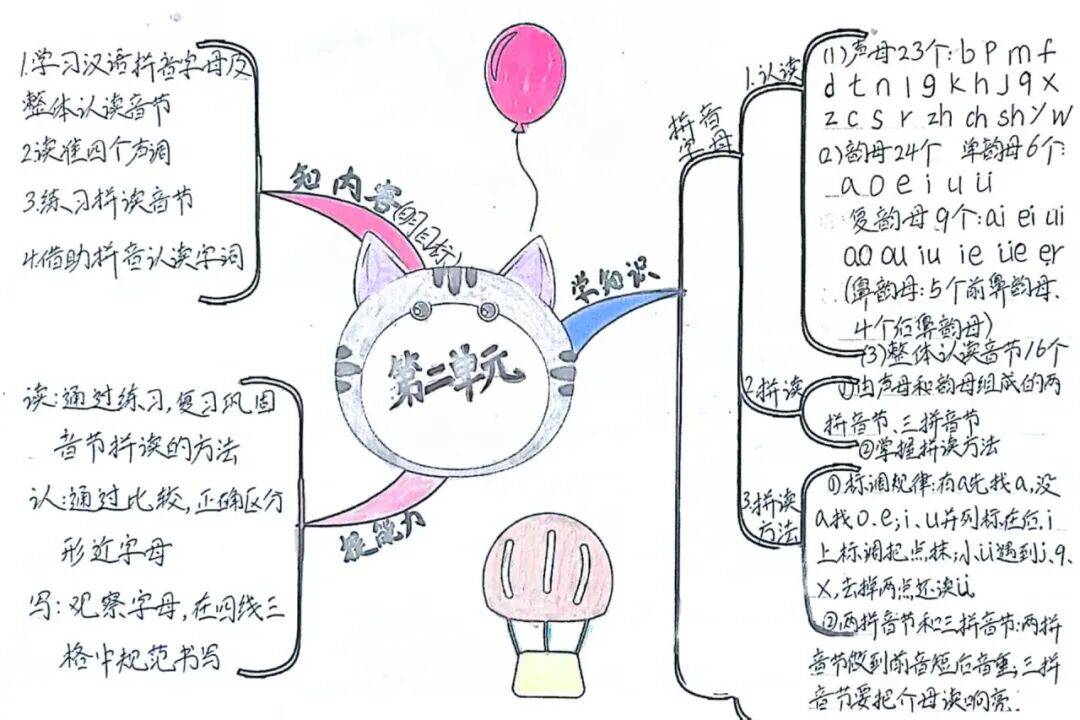 第二单元
知内容(明目标)
1.学习汉语拼音字母及
整体认读音节
2.读准四个声调
3.练习拼读音节
4.借助拼音认读字词
学知识
拼音
字母
1.认读
(1)声母23个:b p m f
d t n l g k h j q x
z c s r zh ch sh y w
(2)韵母24个 单韵母6个:
a o e i u ü
复韵母9个:ai ei ui
ao ou iu ie üe er
(鼻韵母:5个前鼻韵母、
4个后鼻韵母)
(3)整体认读音节16个
2.拼读
①由声母和韵母组成的两
拼音节、三拼音节
②掌握拼读方法
3.拼读
方法
①标调规律:有a先找a,没
a找o.e;i、u并列标在后,i
上标调把点抹;小ü遇到j、q、
x,去掉两点还读ü
②两拼音节和三拼音节:两拼
音节做到前音短后音重;三拼
音节要把介母读响亮.
能力
读:通过练习,复习巩固
音节拼读的方法
认:通过比较,正确区分
形近字母
写:观察字母,在四线三
格中规范书写